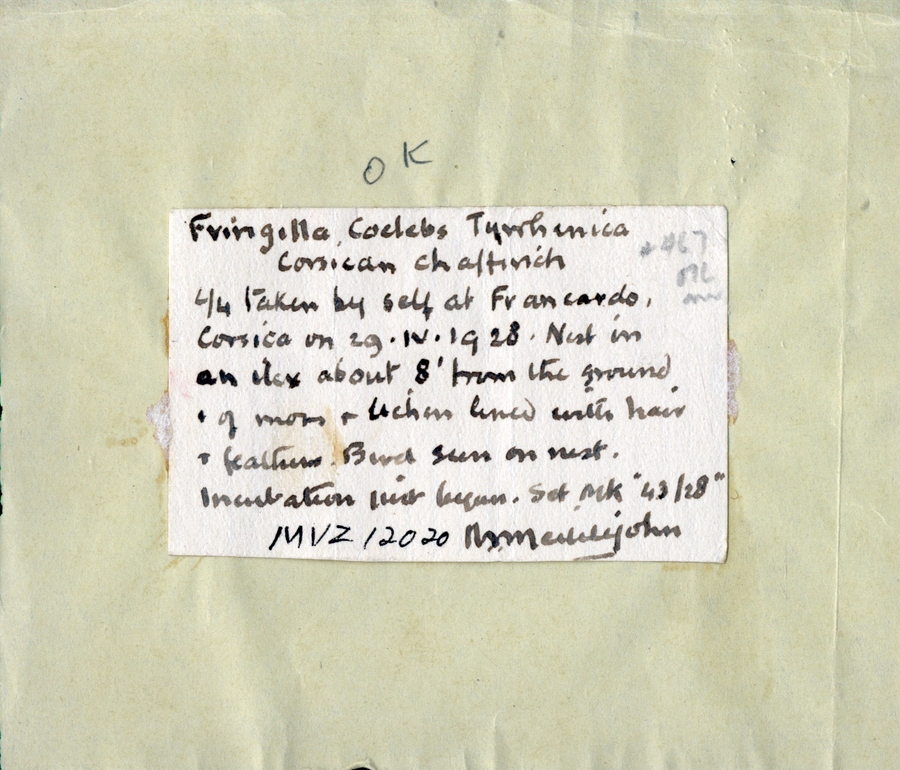 OK
Fringilla Coelebs Tyrrhenica
Corsican Chaffinch
4/4 Taken by self at Francardo,
Corsica on 29.IV.1928. Nest in
an ilex about 8' from the ground
+ of moss + lichen lined with hair
+ feathers. Bird seen on nest.
Incubation just began. Set Mk "43/28"
MVZ 12020 Meiklejohn
467